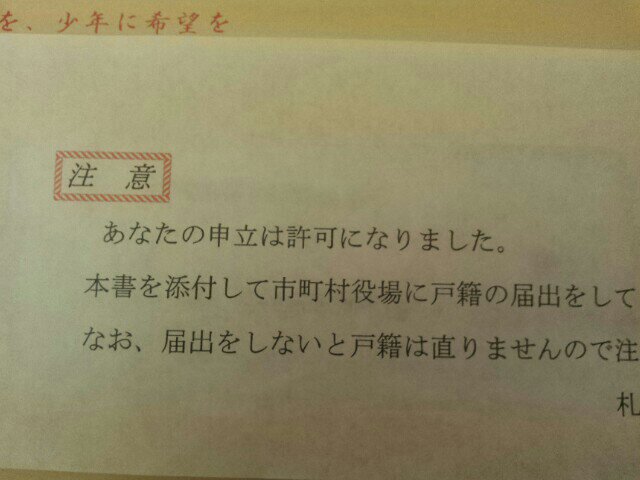 を、少年に希望を
注意
あなたの申立は許可になりました。
本書を添付して市町村役場に戸籍の届出をして
なお、届出をしないと戸籍は直りませんので注
札